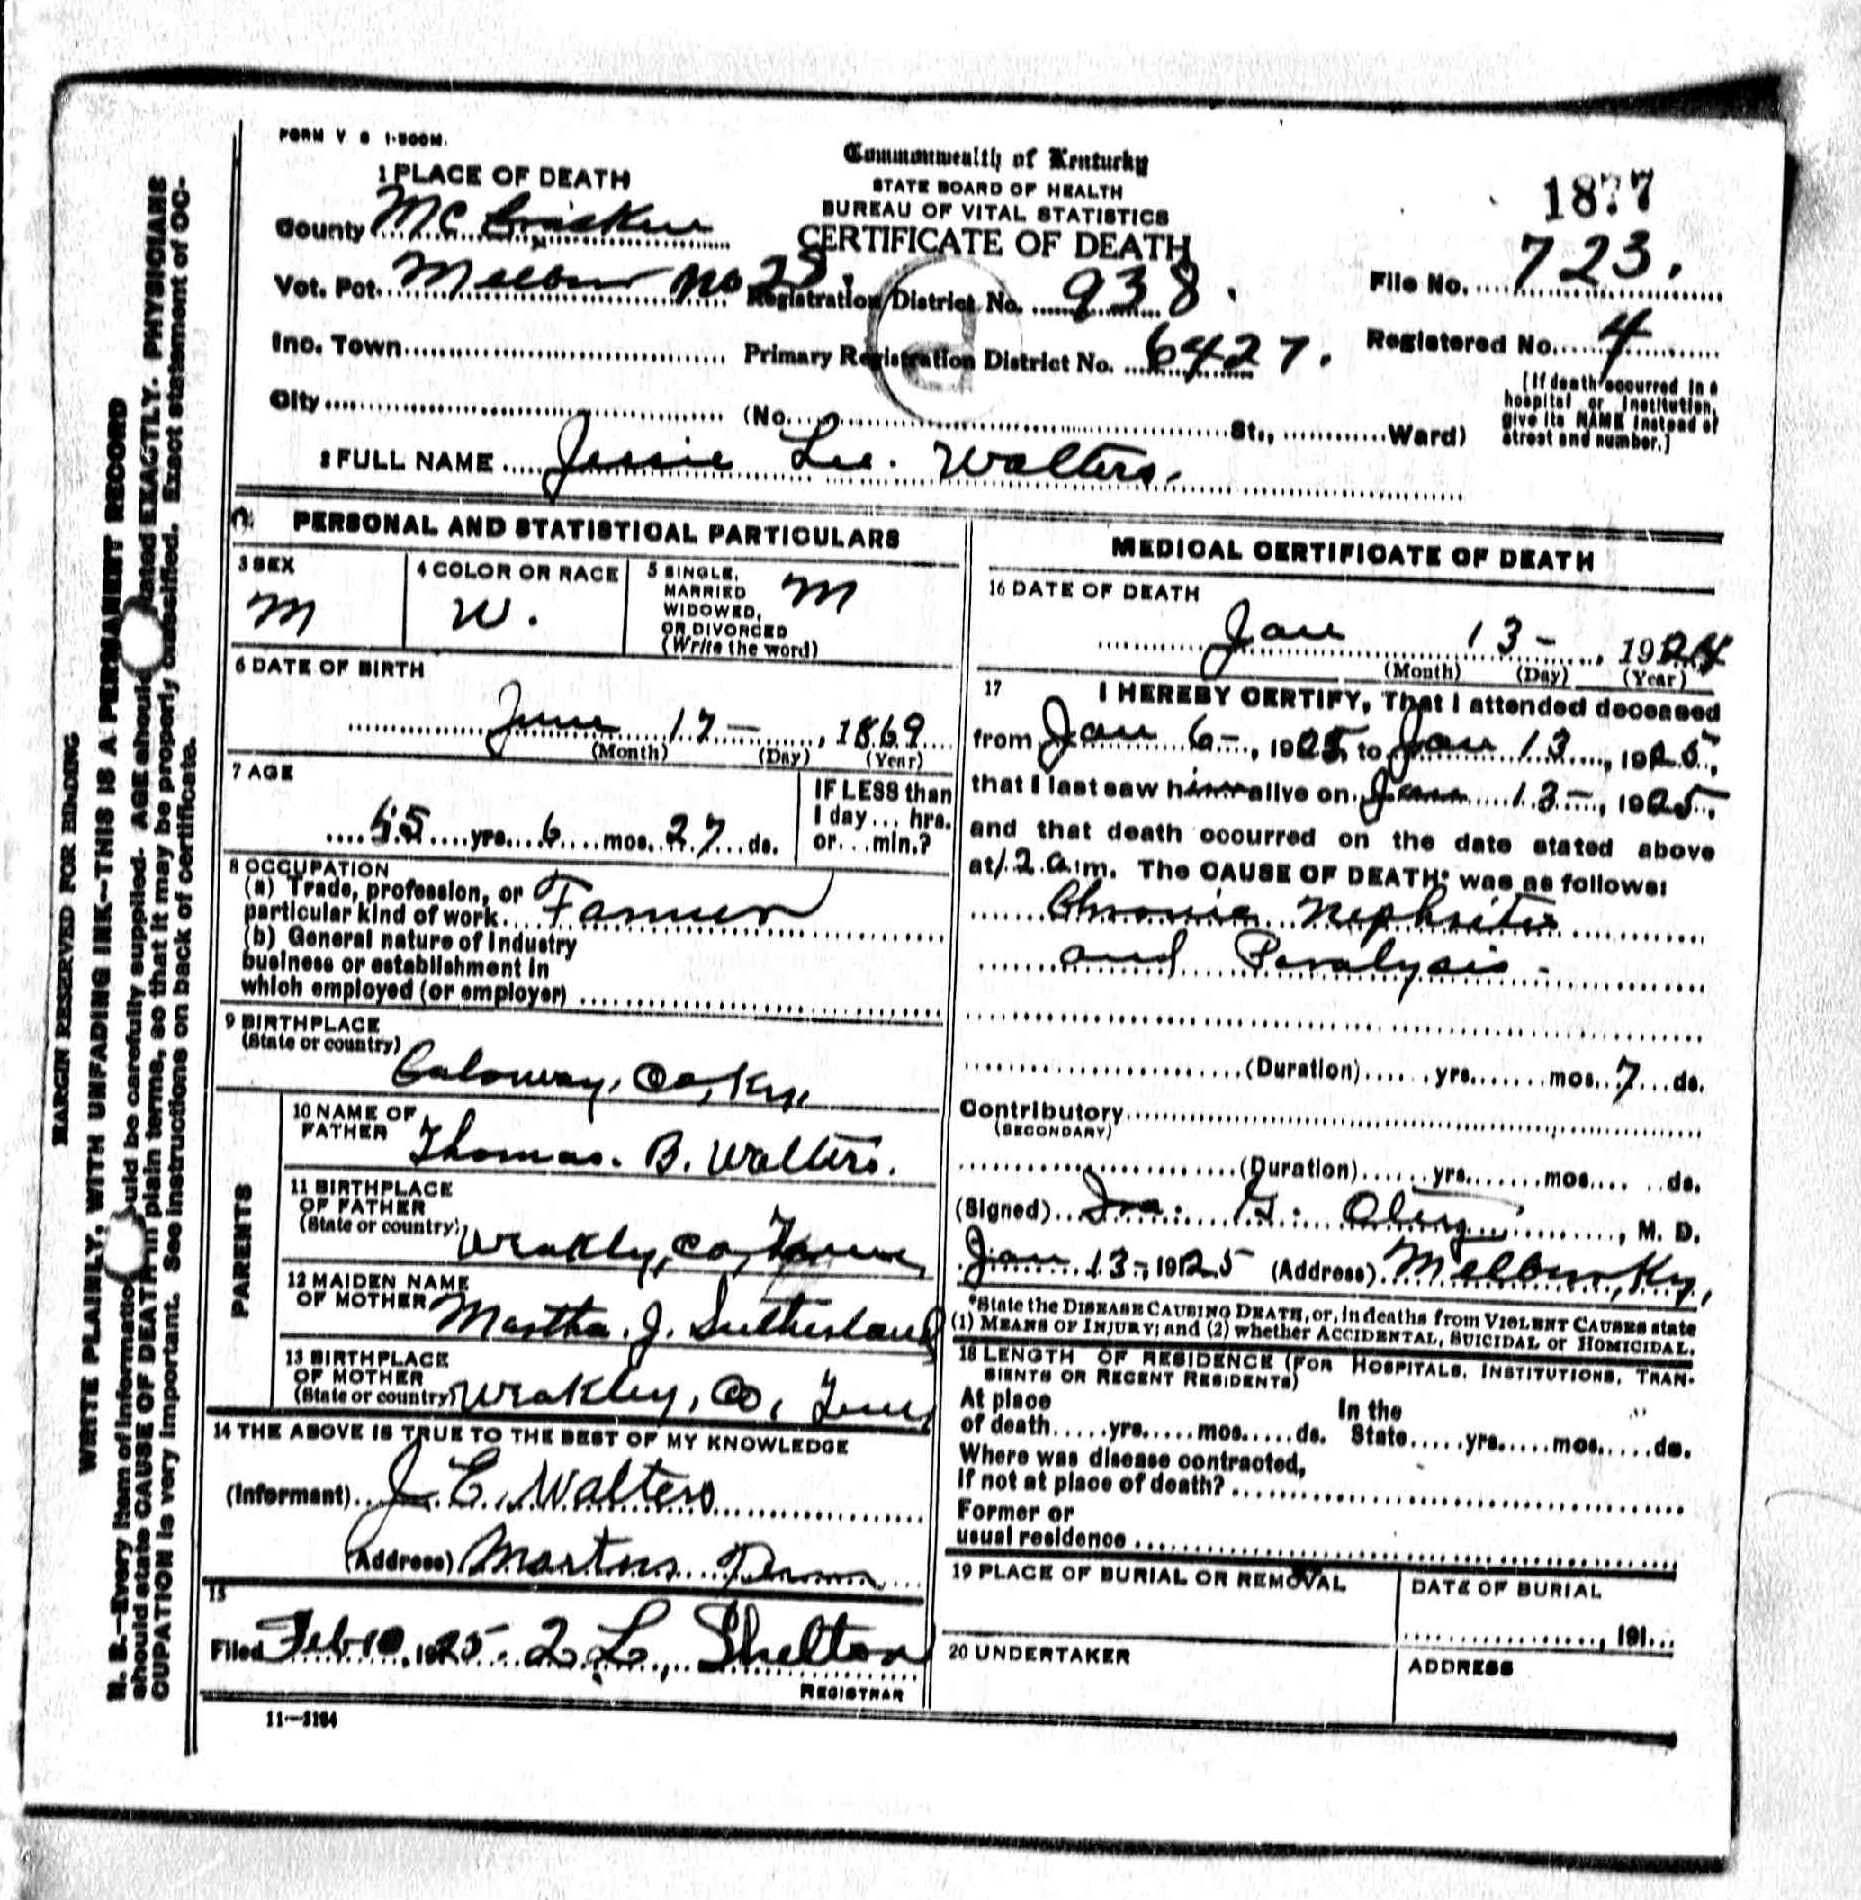 FORM V S 1-500M.
Commonwealth of Kentucky
STATE BOARD OF HEALTH
BUREAU OF VITAL STATISTICS
CERTIFICATE OF DEATH
1877
1 PLACE OF DEATH
County McCracken
Vot. Pct. Melber No 28. Registration District No. 938. File No. 723.
Inc. Town Primary Registration District No. 6427. Registered No. 4
City (No. St., Ward)
[If death occurred in a
hospital or institution,
give its NAME instead of
street and number.]
2 FULL NAME Jessie Lee. Walters.
PERSONAL AND STATISTICAL PARTICULARS
3 SEX
M
4 COLOR OR RACE
W.
5 SINGLE,
MARRIED
WIDOWED,
OR DIVORCED
(Write the word)
M
6 DATE OF BIRTH
June 17-, 1869
(Month) (Day) (Year)
7 AGE
55 yrs. 6 mos. 27 ds.
IF LESS than
1 day... hrs.
or... min.?
8 OCCUPATION
(a) Trade, profession, or
particular kind of work. Farmer
(b) General nature of Industry
business or establishment in
which employed (or employer)
9 BIRTHPLACE
(State or country)
Caloway, Co, Ky,
PARENTS
10 NAME OF
FATHER
Thomas. B. Walters.
11 BIRTHPLACE
OF FATHER
(State or country)
Weakley, Co, Tenn,
12 MAIDEN NAME
OF MOTHER
Martha. J. Sutherland
13 BIRTHPLACE
OF MOTHER
(State or country)
Weakley, Co, Tenn,
14 THE ABOVE IS TRUE TO THE BEST OF MY KNOWLEDGE
(Informant) J. C. Walters
(Address) Martin Tenn
15
Filed Feb 10, 1925. L, Shelton
REGISTRAR
11—3184
MEDICAL CERTIFICATE OF DEATH
16 DATE OF DEATH
Jan 13-, 1924
(Month) (Day) (Year)
17 I HEREBY CERTIFY, That I attended deceased
from Jan 6-, 1925, to Jan 13, 1925,
that I last saw him alive on Jan 13-, 1925,
and that death occurred on the date stated above
at 12 a. m. The CAUSE OF DEATH* was as follows:
Chronic Nephritis
and Paralysis-
(Duration) yrs. mos. 7 ds.
Contributory
(SECONDARY)
(Duration) yrs. mos. ds.
(Signed) M. D.
Jan 13-, 1925 (Address) Melber, Ky,
*State the DISEASE CAUSING DEATH, or, in deaths from VIOLENT CAUSES state
(1) MEANS OF INJURY; and (2) whether ACCIDENTAL, SUICIDAL or HOMICIDAL.
18 LENGTH OF RESIDENCE (FOR HOSPITALS, INSTITUTIONS, TRAN-
SIENTS OR RECENT RESIDENTS)
At place
of death yrs. mos. ds.
In the
State yrs. mos. ds.
Where was disease contracted,
If not at place of death?
Former or
usual residence
19 PLACE OF BURIAL OR REMOVAL
DATE OF BURIAL
, 191...
20 UNDERTAKER
ADDRESS
MARGIN RESERVED FOR BINDING
WRITE PLAINLY, WITH UNFADING INK—THIS IS A PERMANENT RECORD
N. B.—Every item of information should be carefully supplied. AGE should be stated EXACTLY. PHYSICIANS
should state CAUSE OF DEATH in plain terms, so that it may be properly classified. Exact statement of OC-
CUPATION is very important. See instructions on back of certificate.